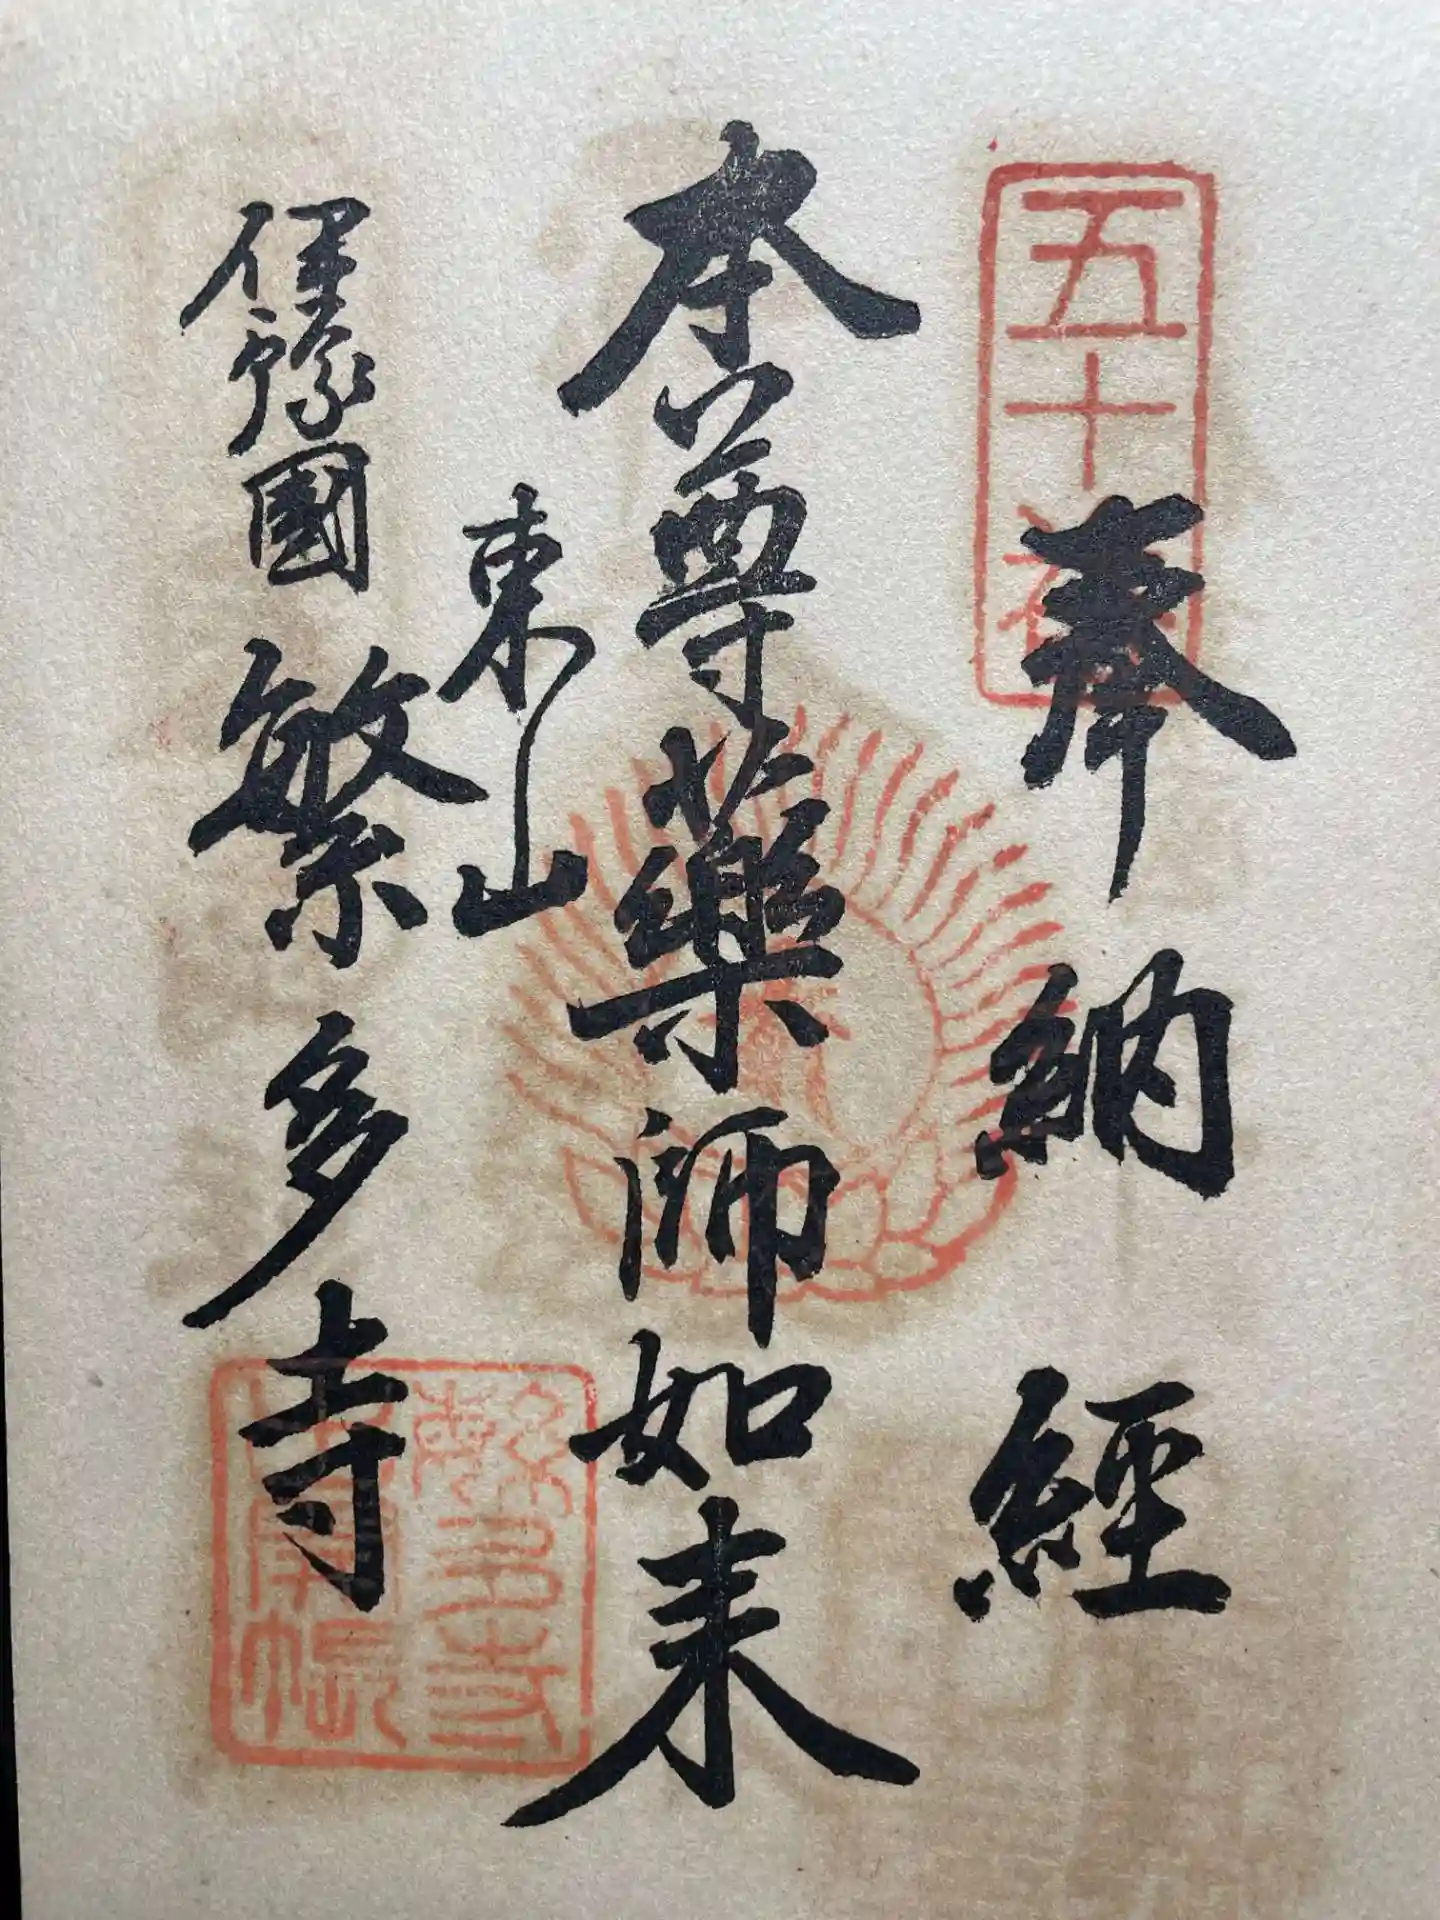 五十番
奉納經
本尊薬師如来
東山
伊豫國繁多寺
繁多寺